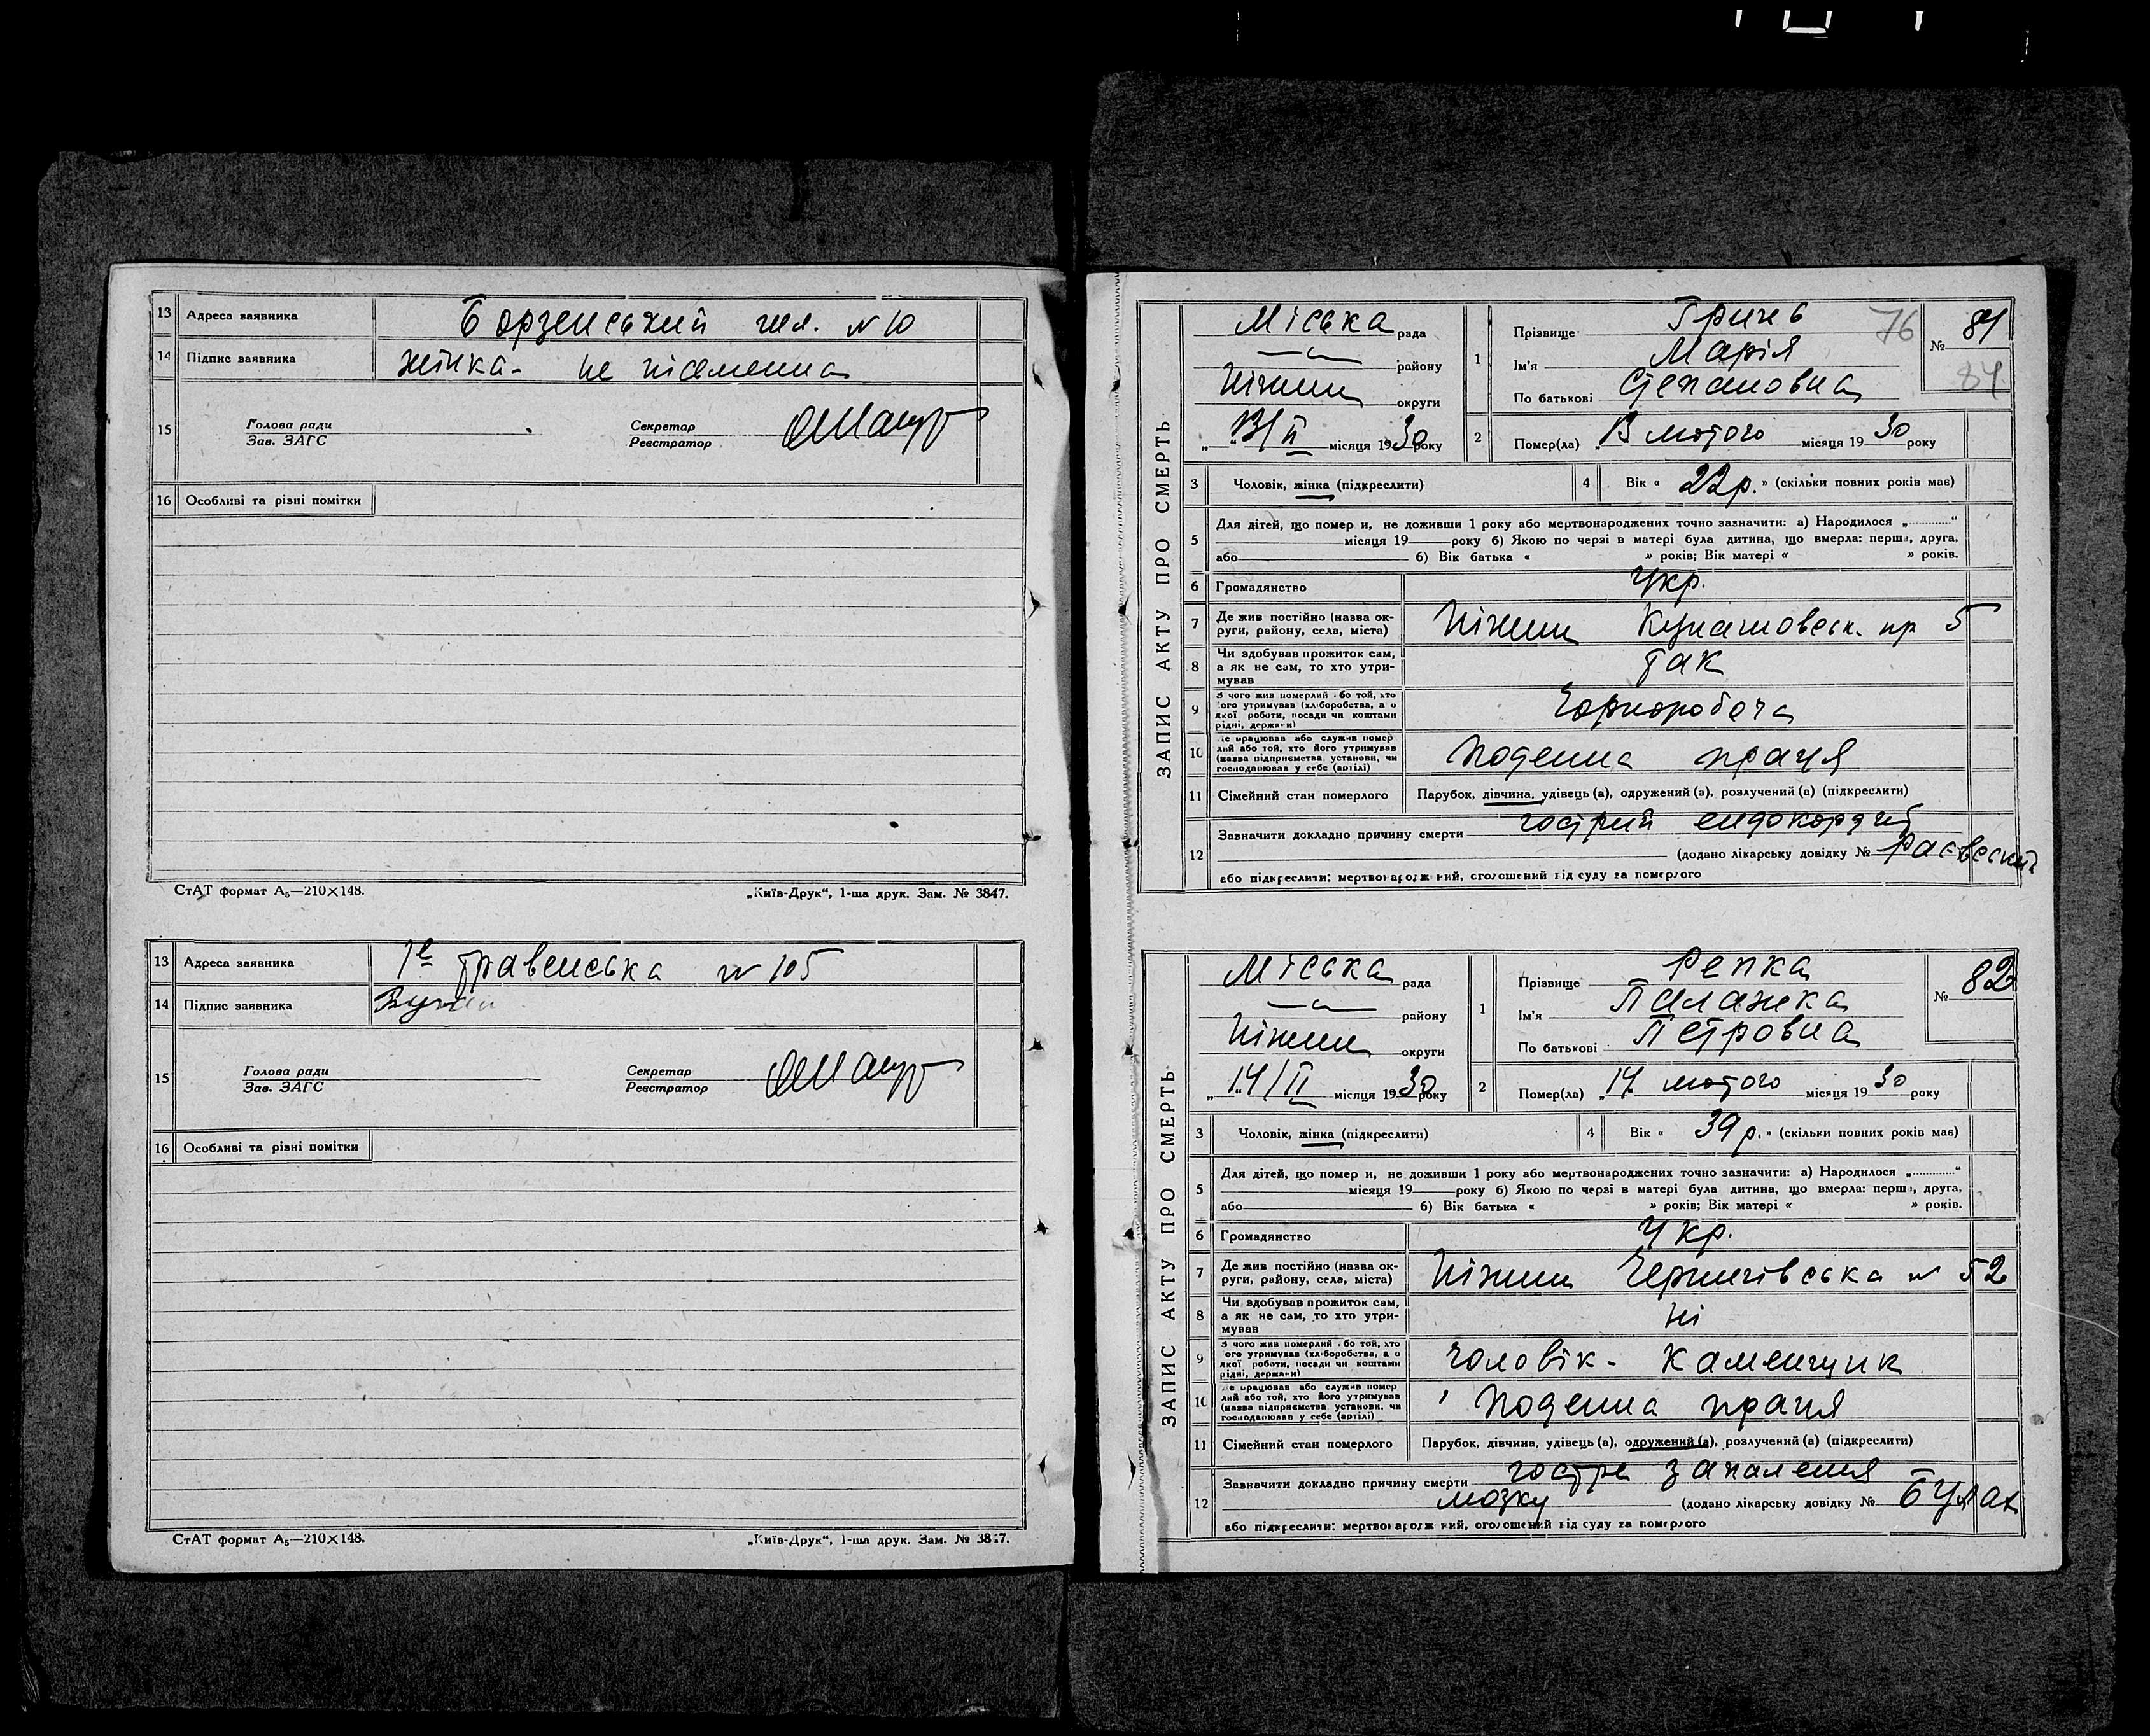 13 Адреса заявника Борзенський шл. №10
14 Підпис заявника жінка- не písьменна
15 Голова ради Секретар
Зав. ЗАГС Реєстратор
16 Особливі та різні помітки
СтАТ формат А5—210×148. „Київ-Друк“, 1-ша друк. Зам. № 3847.
13 Адреса заявника 1е Травенська № 105
14 Підпис заявника
15 Голова ради Секретар
Зав. ЗАГС Реєстратор
16 Особливі та різні помітки
СтАТ формат А5—210×148. „Київ-Друк“, 1-ша друк. Зам. № 3847.
ЗАПИС АКТУ ПРО СМЕРТЬ
Міська рада
району
Ніжин округи
„13/II місяця 1930 року
1 Прізвище Грич
76
Ім'я Марія
По батькові Степановна
№ 81
81
2 Помер(ла) „13 лютого місяця 1930 року
3 Чоловік, жінка (підкреслити) 4 Вік « 22 р. » (скільки повних років має)
5 Для дітей, що померли, не доживши 1 року або мертвонароджених точно зазначити: а) Народилося „ “
місяця 19 року б) Якою по черзі в матері була дитина, що вмерла: перша, друга,
або б) Вік батька « » років; Вік матері « » років.
6 Громадянство Укр.
7 Де жив постійно (назва округи, району, села, міста) Ніжин Кунашовськ. пр 5
8 Чи здобував прожиток сам, а як не сам, то хто утримував так
9 З чого жив померлий або той, хто його утримував (хліборобства, а о якої роботи, посади чи коштами рідні, держави) Чорноробоча
10 Де працював або служив померлий або той, хто його утримував (назва підприємства установи, чи господарював у себе (артілі) Поденна праця
11 Сімейний стан померлого Парубок, дівчина, удівець (а), одружений (а), розлучений (а) (підкреслити)
12 Зазначити докладно причину смерти гострий ендокордит
(додано лікарську довідку № Раєвский
або підкреслити: мертвонароджений, оголошений від суду за померлого
ЗАПИС АКТУ ПРО СМЕРТЬ
Міська рада
району
Ніжин округи
„14/II місяця 1930 року
1 Прізвище Репка
Ім'я Палажка
По батькові Петровна
№ 82
2 Помер(ла) „14 лютого місяця 1930 року
3 Чоловік, жінка (підкреслити) 4 Вік « 39 р. » (скільки повних років має)
5 Для дітей, що померли, не доживши 1 року або мертвонароджених точно зазначити: а) Народилося „ “
місяця 19 року б) Якою по черзі в матері була дитина, що вмерла: перша, друга,
або б) Вік батька « » років; Вік матері « » років.
6 Громадянство Укр.
7 Де жив постійно (назва округи, району, села, міста) Ніжин Чернигівська № 52
8 Чи здобував прожиток сам, а як не сам, то хто утримував ні
9 З чого жив померлий або той, хто його утримував (хліборобства, а о якої роботи, посади чи коштами рідні, держави) чоловік - Каменщик
10 Де працював або служив померлий або той, хто його утримував (назва підприємства установи, чи господарював у себе (артілі) Поденна праця
11 Сімейний стан померлого Парубок, дівчина, удівець (а), одружений (а), розлучений (а) (підкреслити)
12 Зазначити докладно причину смерти гостре запалення
мозку (додано лікарську довідку № Булах
або підкреслити: мертвонароджений, оголошений від суду за померлого